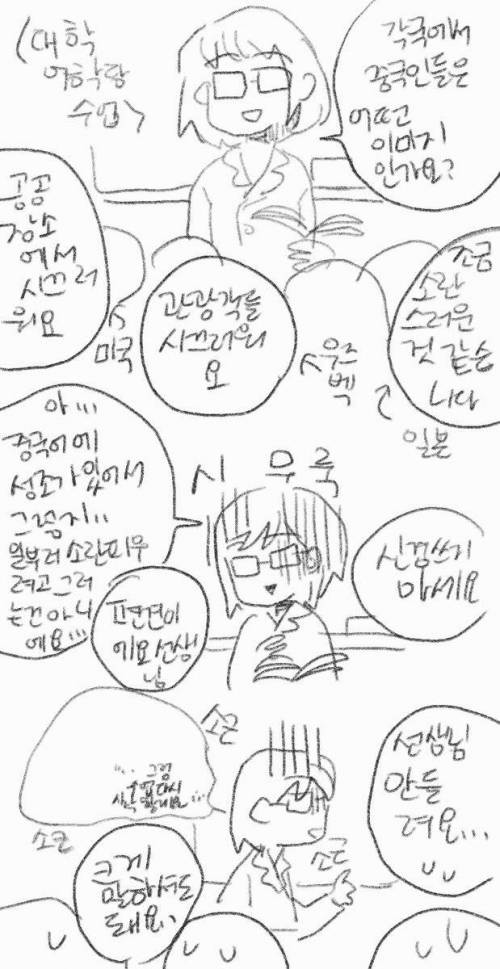 (대학
어학당
수업)
각국에서
중국인들은
어떤
이미지
인가요?
공공
장소
에서
시끄러
워요
미국
관광객들
시끄러워
요
우즈
벡
조금
소란
스러운
것 같습
니다
일본
아...
중국어에
성조가 있어서
그렇지..
일부러 소란피우
려고 그러
는건 아니
에요...
시 무룩
신경쓰지
마세요
편견이
에요 선생
님
소근
"..그럼
수업 다시
시작 할게요..."
소근
소근
선생님
안들
려요...
크게
말하셔도
돼요..